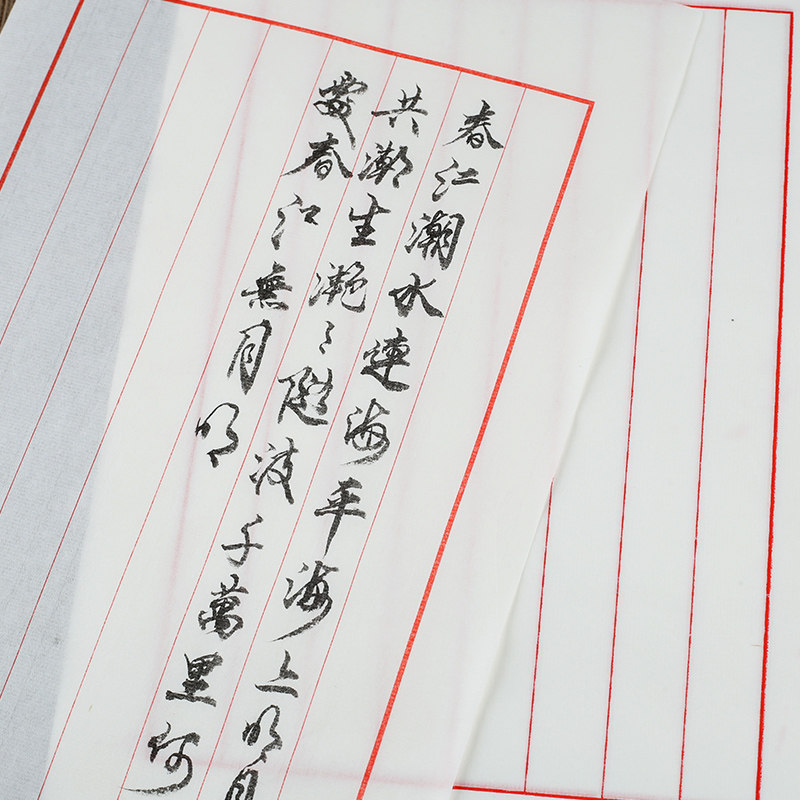 春江潮水連海平海上明月
共潮生灧〻隨波千萬里何
處春江無月明